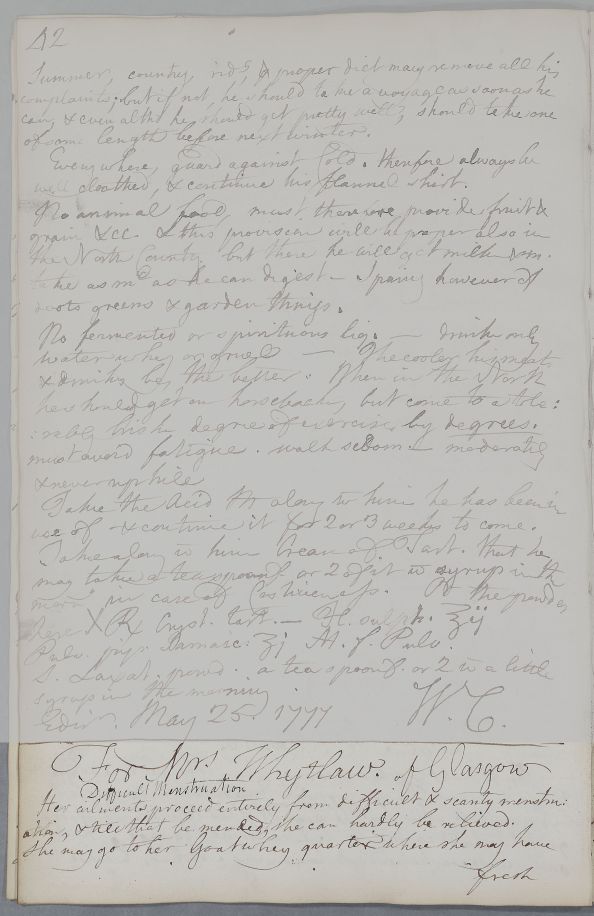 42
Summer, country, rid§, & proper diet may remove all his
complaints; but if not, he should take a voyage as soon as he
can, & even altho he should get pretty well, should take one
of some length before next winter.
Every where, guard against Cold. therefore always be
well cloathed, & continue his flannel shirt.
No animal food, must, therefore, provide fruit &
grain &cc. & this provision will be proper also in
the North Country but there he will get milk &
take as md as he can digest — Sparing however of
roots greens & garden things.
No fermented or spirituous liq. — drink only
water whey or gruel — The cooler his meat
& drinks be, the better. When in the North
he should get on horseback, but come to a tole:
:rably brisk degree of exercise, by degrees.
must avoid fatigue. walk seldom — moderately
& never up hile
Take the Acid along w him he has been in
use of — & continue it for 2 or 3 weeks to come.
Take along w him Cream of Tart. that he
may take a teaspoonf or 2 of it w syrup in the
morng in case of Costiveness. Or the powder
here X Rx Cryst. tart. — Fl. sulph. ʒij
Pulv. Jamaic: ʒj M. f. Pulv.
S. Laxat. powd. a tea spoonf. or 2 in a little
syrup in the morning
Edinr. May 25. 1777 W. C.
For Mrs Whytlaw. of Glasgow
Difficult Menstruation
Her ailments proceed entirely from difficult & scanty menstru:
ation, & till that be mended, she can hardly be relieved.
She may go to her Goat whey quarter where she may have
fresh